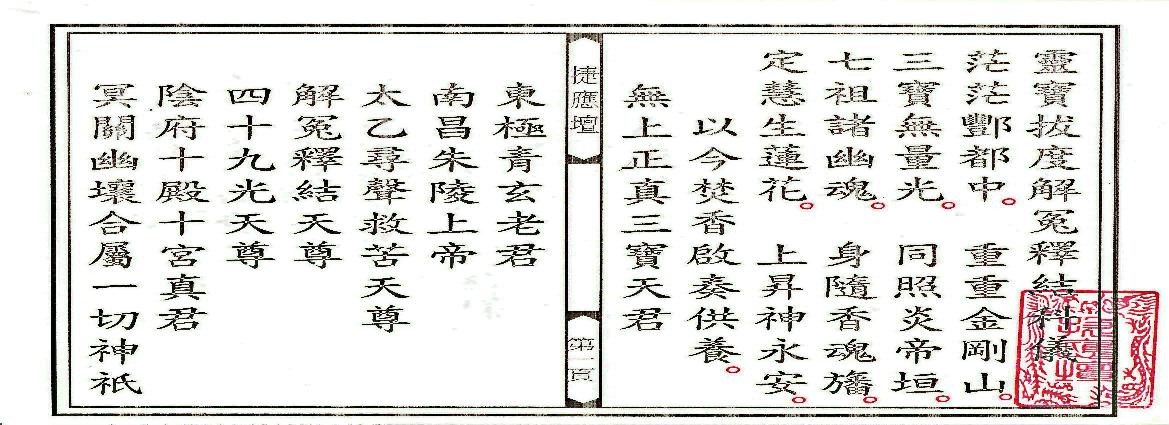 靈寶拔度解冤釋結科儀
茫茫酆都中。重重金剛山。
三寶無量光。同照炎帝垣。
七祖諸幽魂。身隨香魂旛。
定慧生蓮花。上昇神永安。
以今焚香啟奏供養。
無上正真三寶天君
捷應壇
第一頁
東極青玄老君
南昌朱陵上帝
太乙尋聲救苦天尊
解冤釋結天尊
四十九光天尊
陰府十殿十宮真君
冥關幽壤合屬一切神祇